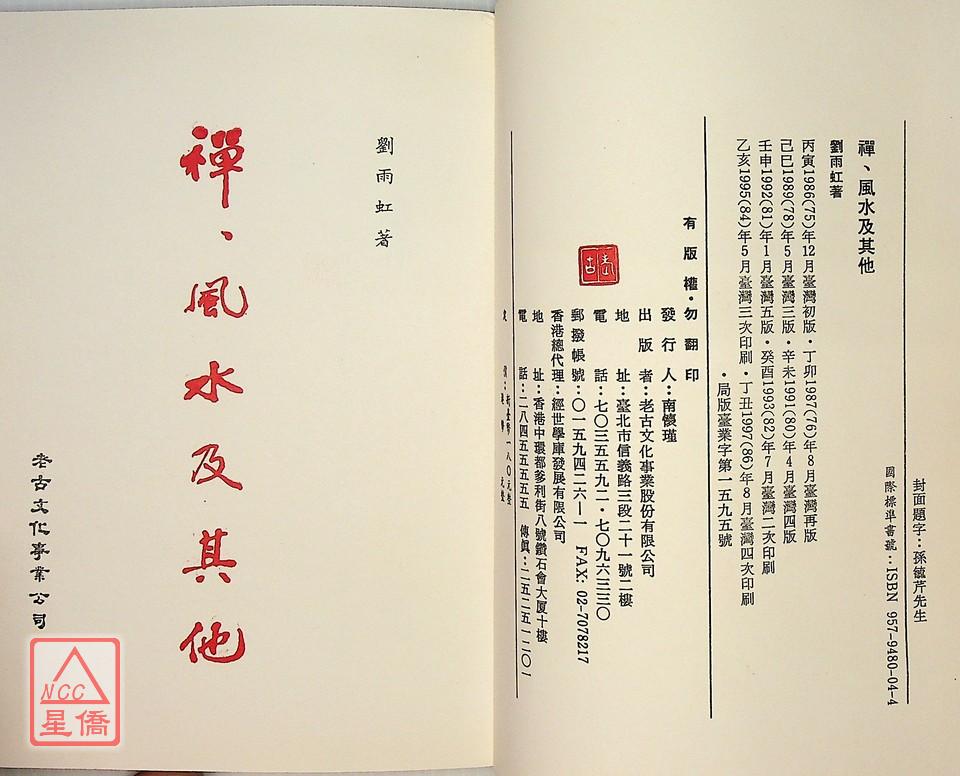 封面題字：孫毓芹先生
國際標準書號：ISBN 957-9480-04-4
禪、風水及其他
劉雨虹著
丙寅1986(75)年12月臺灣初版・丁卯1987(76)年8月臺灣再版
己巳1989(78)年5月臺灣三版・辛未1991(80)年4月臺灣四版
壬申1992(81)年1月臺灣五版・癸酉1993(82)年7月臺灣二次印刷
乙亥1995(84)年5月臺灣三次印刷・丁丑1997(86)年8月臺灣四次印刷
・局版臺業字第一五九五號
有版權・勿翻印
發行人：南懷瑾
出版者：老古文化事業股份有限公司
地址：臺北市信義路三段二十一號二樓
電話：七〇三五五九二・七〇九六三三〇
郵撥帳號：〇一五九四二六—一 FAX: 02-7078217
香港總代理：經世學庫發展有限公司
地址：香港中環都爹利街八號鑽石會大厦十樓
電話：二八四五五五五五 傳眞：二五二五一二〇一
新臺幣一八〇元整
元整
老古
劉雨虹著
禪、風水及其他
老古文化事業公司
NCC
星僑